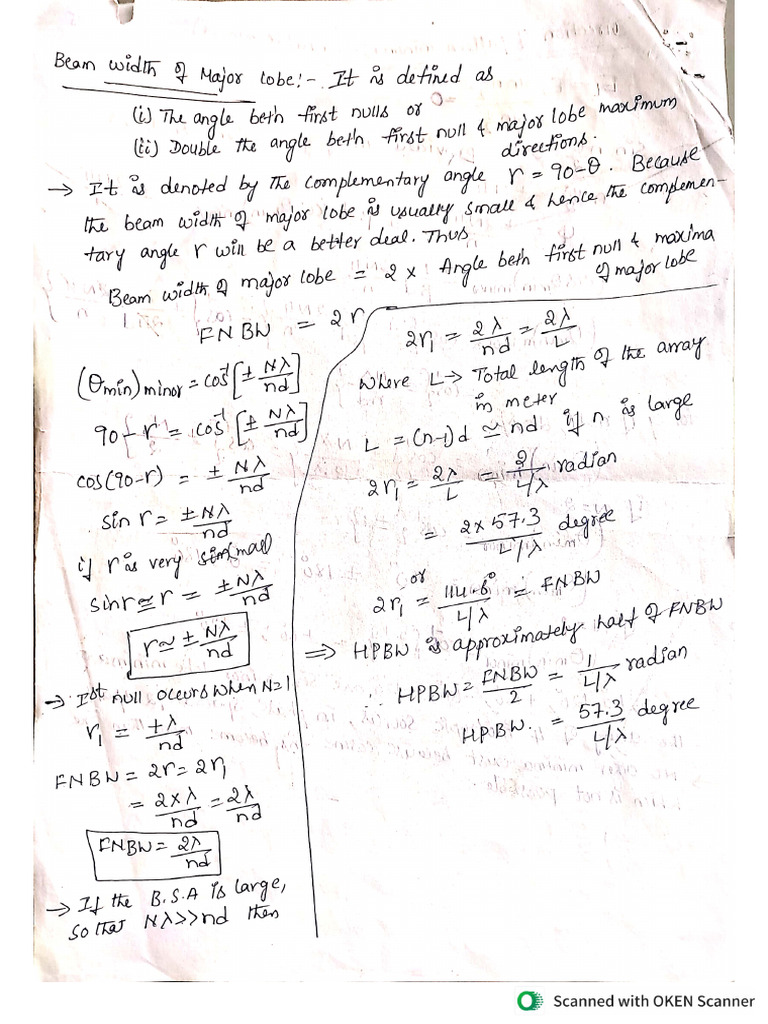 Beam width of Major lobe:- It is defined as
(i) The angle beth first nulls or
(ii) Double the angle beth first null & major lobe maximum
directions.
→ It is denoted by the complementary angle r = 90-θ. Because
the beam width of major lobe is usually small & hence the complemen-
tary angle r will be a better deal. Thus
Beam width of major lobe = 2 × Angle beth first null & maxima
of major lobe
FNBW = 2r
(θmin)minor = cos⁻¹[± Nλ/nd]
90-r = cos⁻¹[± Nλ/nd]
cos(90-r) = ± Nλ/nd
sin r = ± Nλ/nd
if r is very small
sinr ≃ r = ± Nλ/nd
r ≃ ± Nλ/nd
→ Ist null occurs when N=1
r₁ = +λ/nd
FNBW = 2r = 2r₁
= 2×λ/nd = 2λ/nd
FNBW = 2λ/nd
→ If the B.S.A is large,
so that Nλ>>nd then
2r₁ = 2λ/nd = 2λ/L
Where L→ Total length of the array
in meter
L = (n-1)d ≃ nd if n is large
2r₁ = 2λ/L = 2/L/λ radian
= 2×57.3/L/λ degree
or
2r₁ = 114.6°/L/λ = FNBW
⇒ HPBW is approximately half of FNBW
∴ HPBW = FNBW/2 = 1/L/λ radian
HPBW. = 57.3/L/λ degree
Scanned with OKEN Scanner